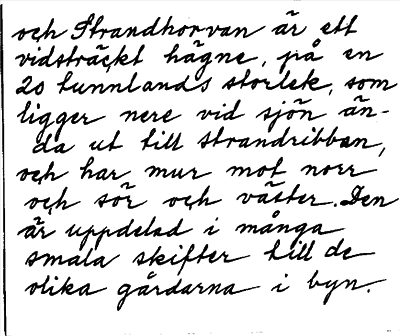 och Strandhorvan är ett
vidsträckt hägne, på en
20 tunnlands storlek, som
ligger nere vid sjön än-
da ut till strandribban,
och har mur mot norr
och sör och väster. Den
är uppdelad i många
smala skifter till de
olika gårdarna i byn.